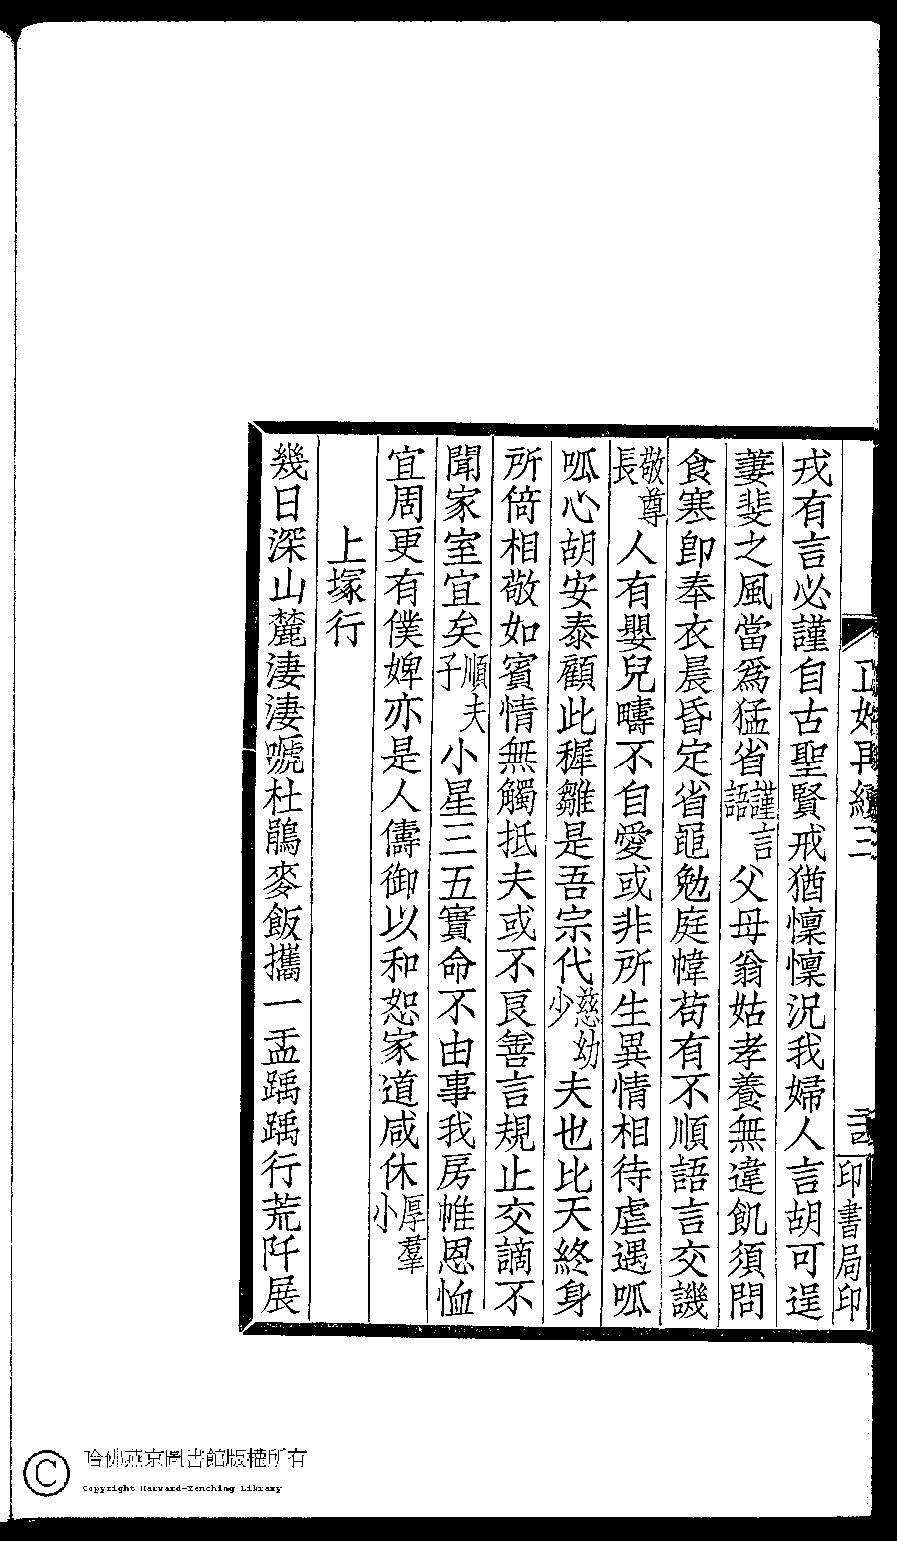 戎有言必謹自古聖賢戒猶懍懍況我婦人言胡可逞
萋斐之風當爲猛省謹言語父母翁姑孝養無違飢須問
食寒卽奉衣晨昏定省黽勉庭幃苟有不順語言交譏
敬尊長人有嬰兒疇不自愛或非所生異情相待虐遇呱
呱心胡安泰顧此穉雛是吾宗代慈幼少夫也比天終身
所倚相敬如賓情無觸抵夫或不良善言規止交謫不
聞家室宜矣順夫子小星三五實命不由事我房帷恩恤
宜周更有僕婢亦是人儔御以和恕家道咸休厚羣小
上塚行
幾日深山麓淒淒嗁杜鵑麥飯攜一盂踽踽行荒阡展
正始再續三
印書局印
哈佛燕京圖書館版權所有
Copyright Harvard-Yenching Library